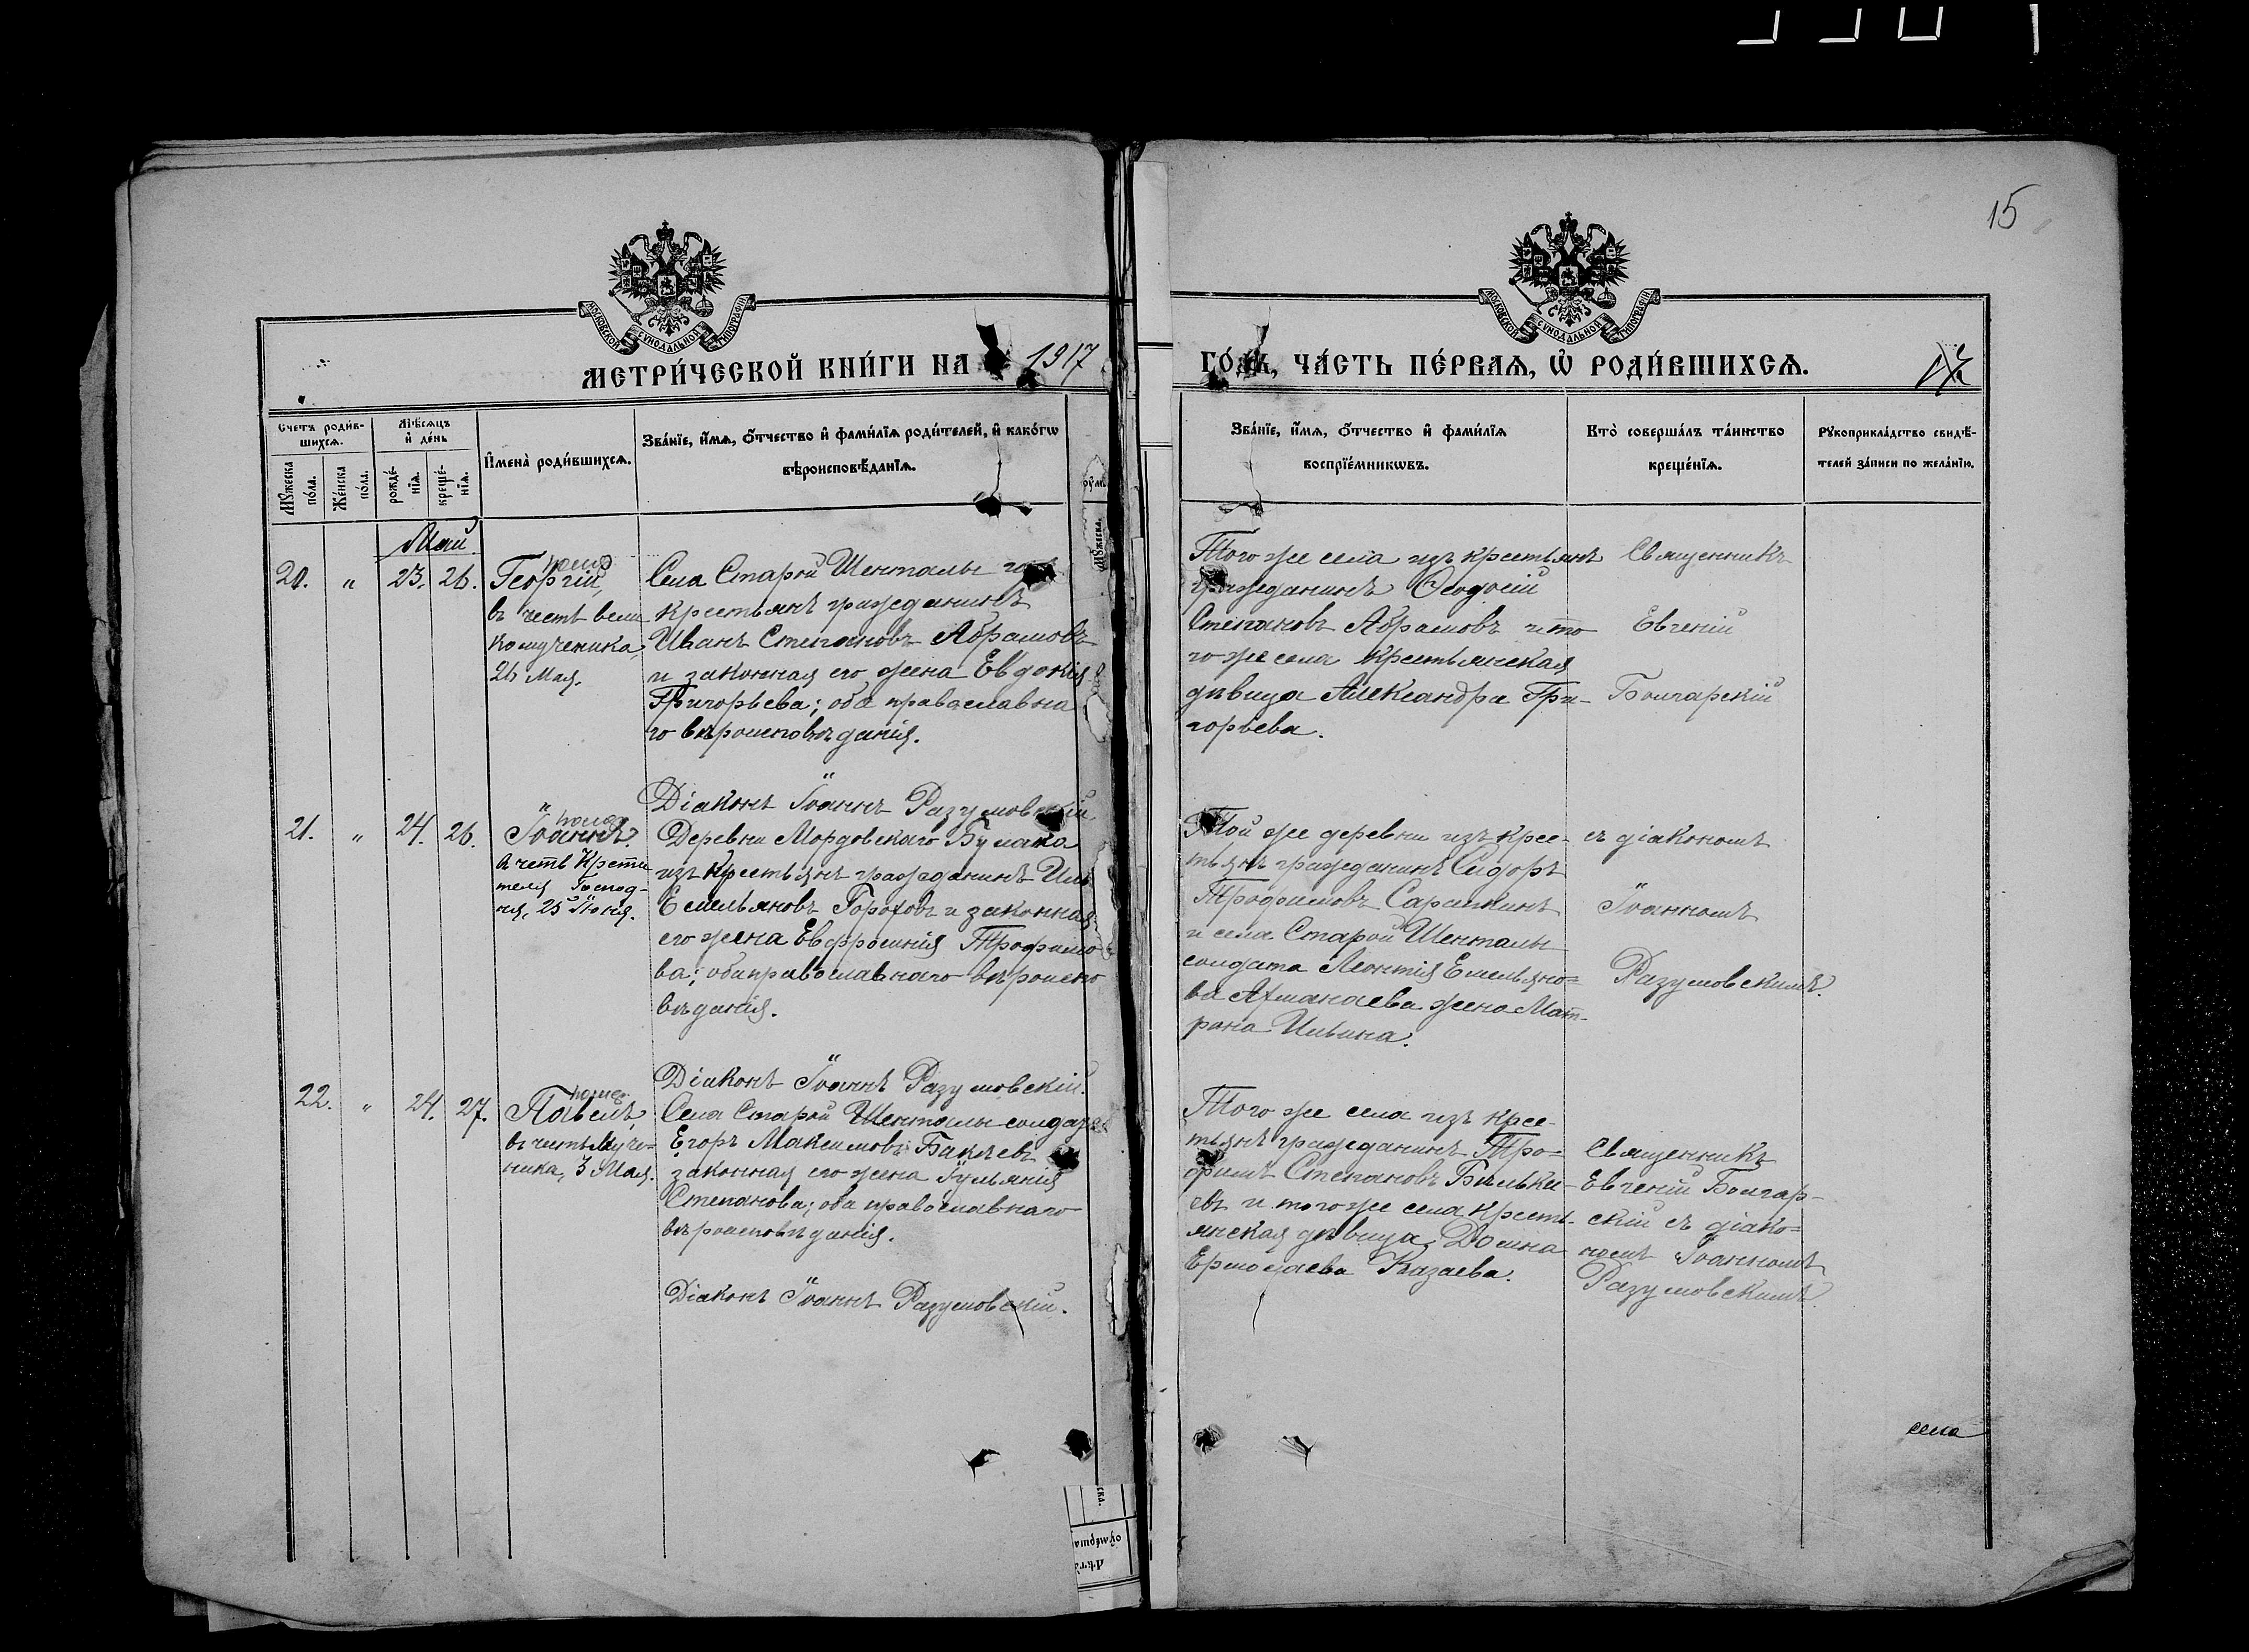 15
МОСКОВСКОЙ СѴНОДАЛЬНОЙ ТИПОГРАФІИ
МОСКОВСКОЙ СѴНОДАЛЬНОЙ ТИПОГРАФІИ
МЕТРИ́ЧЕСКОЙ КНИ́ГИ НА 1917
ГО́ДЪ, ЧА́СТЬ ПЕ́РВАѦ, Ѡ РОДИ́ВШИХСѦ.
Счетъ роди́в-
шихсѧ.
Мѣ́сѧцъ
и҆ де́нь
Мꙋ́жеска по́ла.
Же́нска по́ла.
рожде́-
нїѧ.
креще́-
нїѧ.
И҆мена̀ роди́вшихсѧ.
Зва́нїе, и҆́мѧ, ѻ҆́тчество и҆ фами́лїѧ роди́телей, и҆ како́гѡ
вѣроисповѣ́данїѧ.
Зва́нїе, и҆́мѧ, ѻ҆́тчество и҆ фами́лїѧ
воспрїе́мникѡвъ.
Кто̀ соверша́лъ та́инство
креще́нїѧ.
Рꙋкоприкла́дство свидѣ́-
телей за́писи по жела́нїю.
Май
20. " 23. 26. Георгій,
въ честь вели
комученика,
26 Мая.
Села Старой Шенталы
крестьянъ гражданинъ
Иванъ Степановъ Абрамовъ
и законная его жена Евдокія
Григорьева; оба православна
го вѣроисповѣданія.
Діаконъ Іоаннъ Разумовскій
Того же села изъ крестьянъ
гражданинъ Ѳеодосій
Степановъ Абрамовъ и то
го же села крестьянская
дѣвица Александра Гри-
горьева.
Священникъ
Евгеній
Болгарскій
21. " 24. 26. Іоаннъ.
въ честь Крести
теля Господ-
ня, 25 Іюня.
Деревни Мордовскаго Бумака
изъ крестьянъ гражданинъ
Емельяновъ Гороховъ и законная
его жена Евфросинія Трофимо
ва; оба православнаго вѣроиспо
вѣданія.
Діаконъ Іоаннъ Разумовскій.
Той же деревни изъ крес-
тьянъ гражданинъ Сидоръ
Трофимовъ Сарайкинъ
и села Старой Шенталы
солдата Леонтія Емельяно=
ва Атманаева жена Мат-
рона Ильина.
съ діакономъ
Іоанномъ
Разумовскимъ.
22. " 24. 27. Павелъ
въ честь Муче=
ника, 3 Мая.
Села Старой Шенталы солдатъ
Егоръ Максимовъ Бакаевъ
законная его жена Іульянія
Степанова; оба православнаго
вѣроисповѣданія.
Діаконъ Іоаннъ Разумовскій.
Того же села изъ крес-
тьянъ гражданинъ Тро=
фимъ Степановъ
и того же села кресть-
янская дѣвица Домна
Ермолаева Казаева.
Священникъ
Евгеній Болгар-
скій съ діако=
номъ Іоанномъ
Разумовскимъ.
села